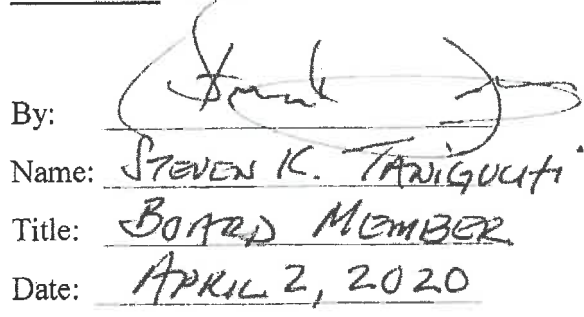 By:
Name: STEVEN K. TANIGUCHI
Title: BOARD MEMBER
Date: APRIL 2, 2020